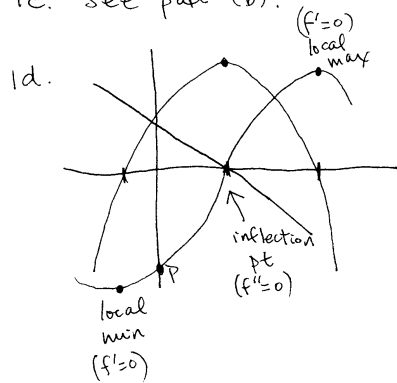 1c. see part (b).
1d.
(f'=0)
local
max
P
inflection
pt
(f''=0)
local
min
(f'=0)